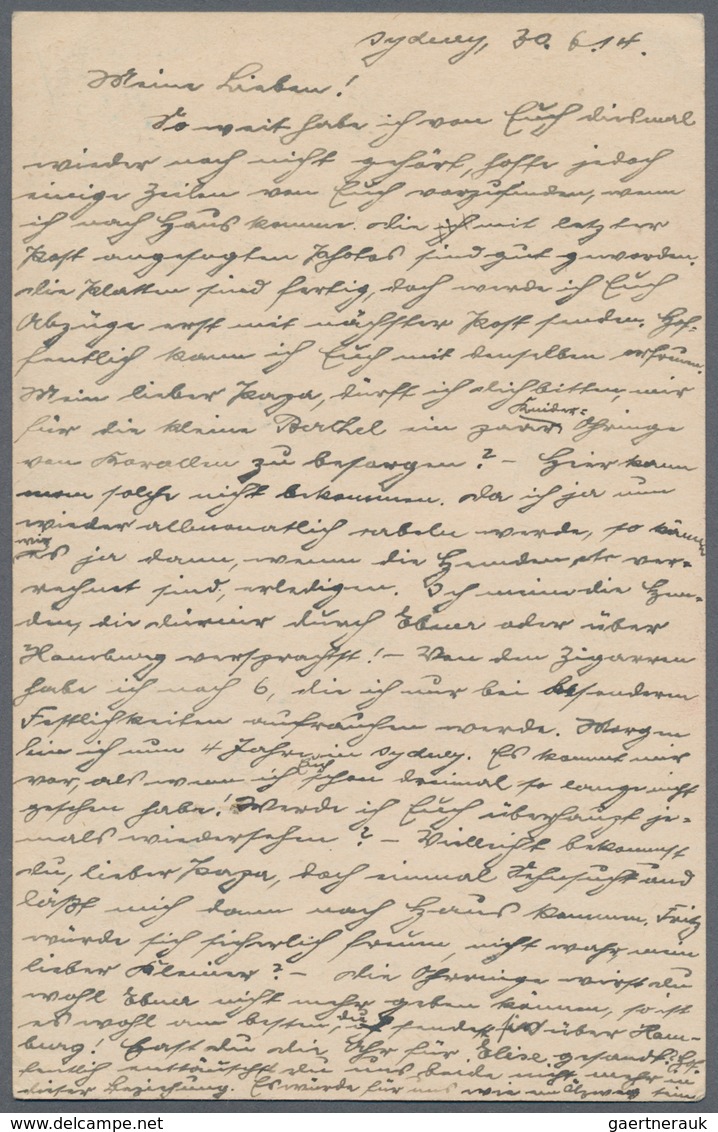 Sydney, 30. 6. 14.
Meine Lieben!
So weit habe ich von Euch diesmal
wieder noch nicht gehört, hoffe jedoch
einige Zeilen von Euch vorzufinden, wenn
ich nach Haus komme. Die mit letzter
Post angesagten Photos sind gut geworden.
Die Platten sind fertig, doch werde ich Euch
Abzüge erst mit nächster Post senden. Hof-
fentlich kann ich Euch mit denselben erfreuen.
Mein lieber Papa, dürft ich Dich bitten, mir
für die kleine ein paar Kinder= Ohringe
von Korallen zu besorgen? – Hier kann
man solche nicht bekommen. Da ich ja nun
wieder allmonatlich kabeln werde, so können
wir es ja dann, wenn die Hemden etc ver-
rechnet sind, erledigen. Ich meine die Hem-
den, die Du mir durch Ebner oder über
Hamburg versprachst! – Von den Zigarren
habe ich noch 6, die ich nur bei besonderen
Festlichkeiten aufrauchen werde. Morgen
bin ich nun 4 Jahre in Sydney. Es kommt mir
vor, als wenn ich Euch schon dreimal so lange nicht
gesehen habe! Werde ich Euch überhaupt je-
mals wiedersehen? – Vielleicht bekommst
Du, lieber Papa, doch einmal Sehnsucht und
läßt mich dann nach Haus kommen. Fritz
würde sich sicherlich freuen, nicht wahr, mein
lieber Kleiner? – Die Ohrringe wirst Du
wohl Ebner nicht mehr geben können, so ist
es wohl am besten, Du sendest sie über Ham-
burg! Hast Du die Uhr für Elise gesandt? Hof-
fentlich enttäuschst Du uns beide nicht mehr in
dieser Beziehung. Es würde für uns wie ein sein
gaertnerauk